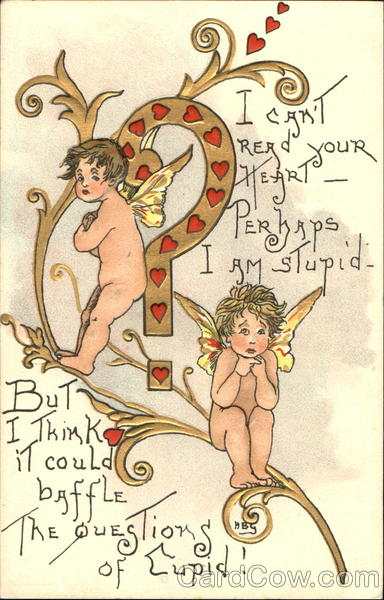 I can't
read your
Heart —
Perhaps
I am stupid-
But
I Think
it could
baffle
The questions
of Cupid!
HBG
CardCow.com